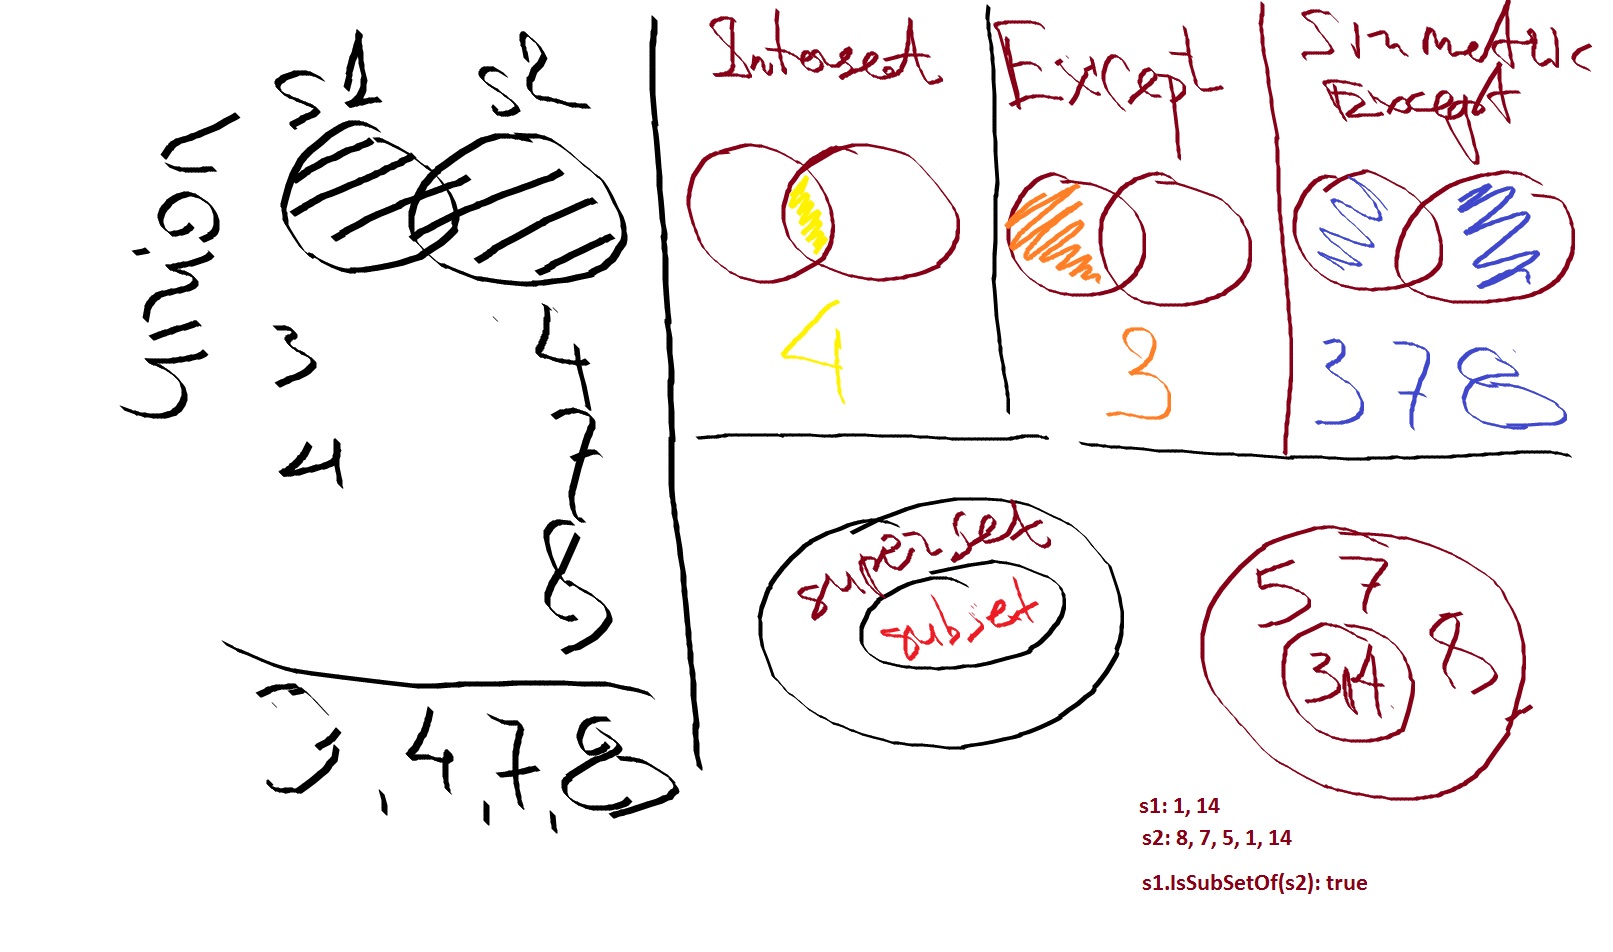 s1 s2
Union
3 4
4 7
8
3, 4, 7, 8
Intersect
4
Except
3
Simmetric
Except
3 7 8
superset
subset
5 7
8
s1: 1, 14
s2: 8, 7, 5, 1, 14
s1.IsSubSetOf(s2): true